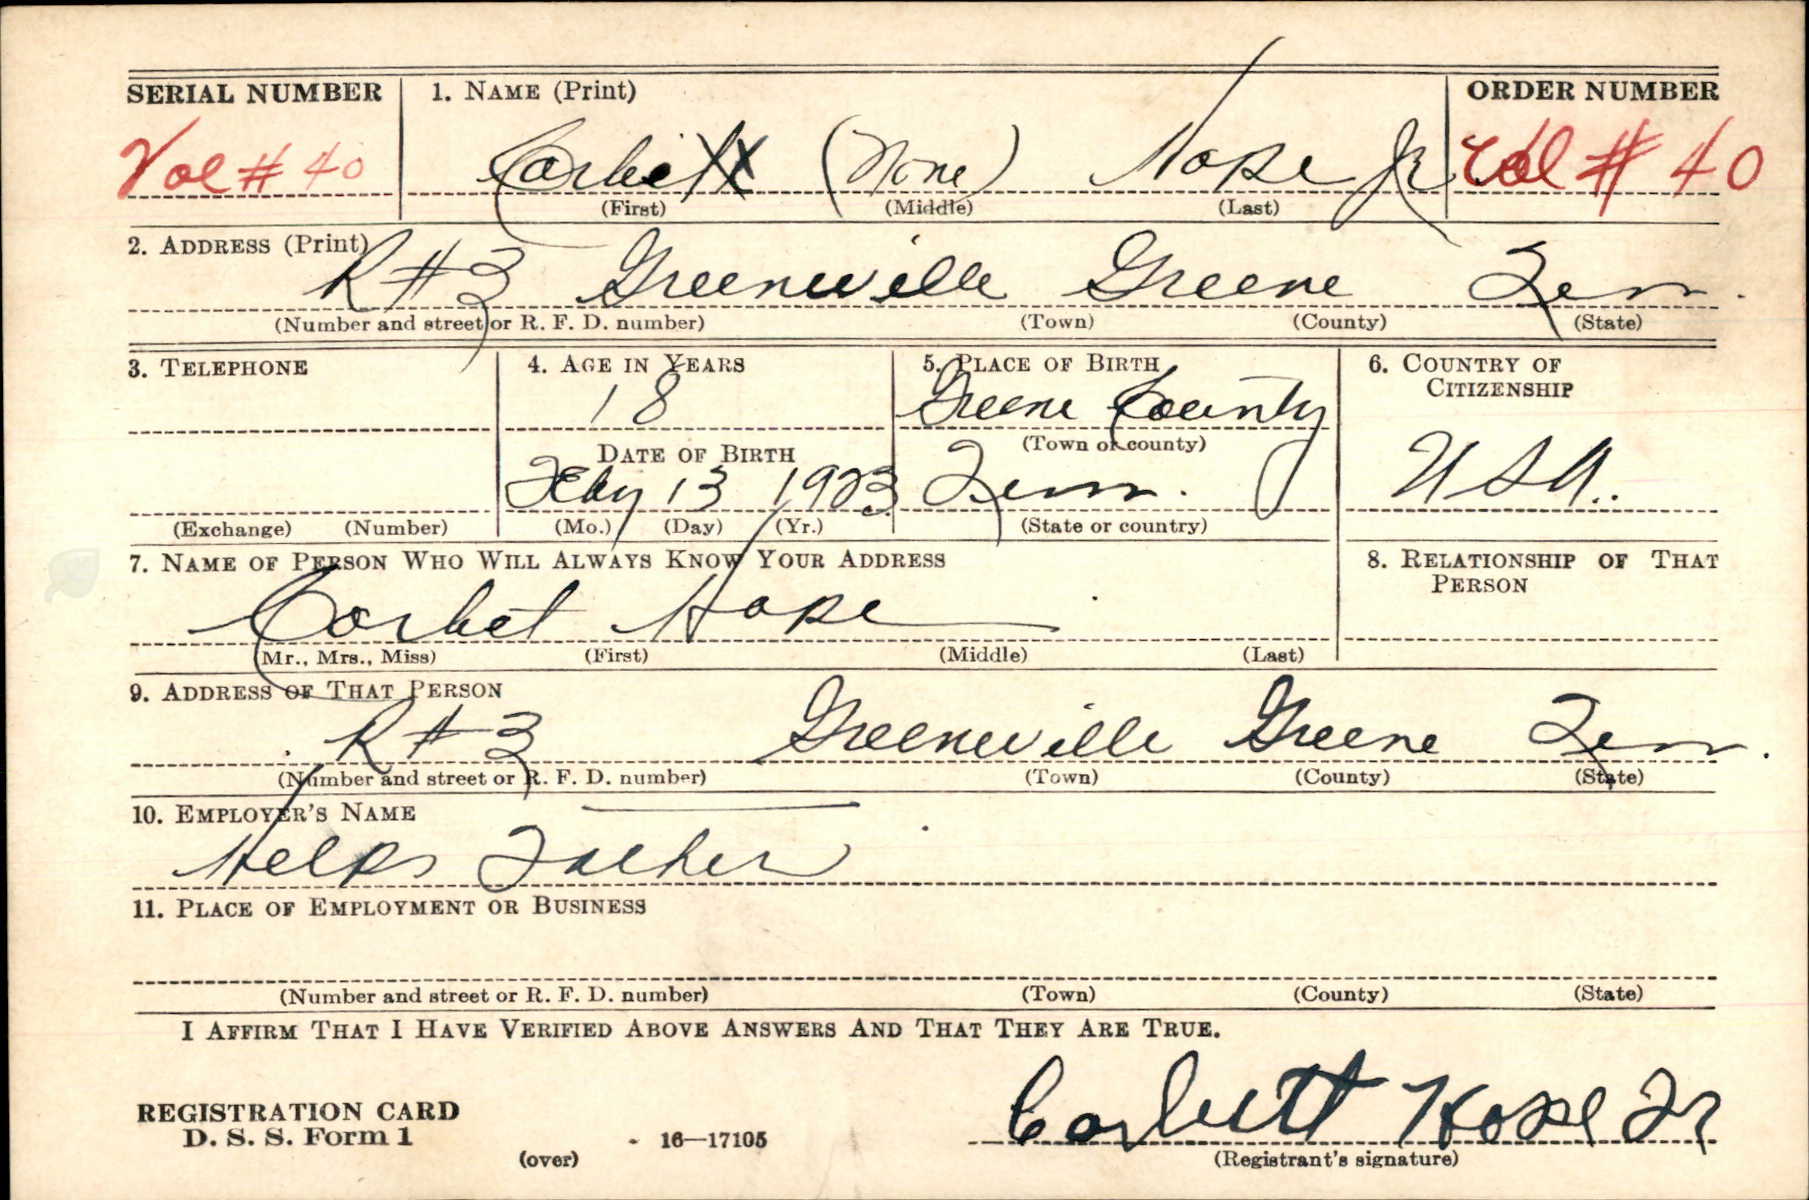 SERIAL NUMBER 1. NAME (Print) ORDER NUMBER
Vol # 40 Corbett (None) Hope Jr Vol # 40
(First) (Middle) (Last)
2. ADDRESS (Print)
R#3 Greeneville Greene Tenn.
(Number and street or R. F. D. number) (Town) (County) (State)
3. TELEPHONE 4. AGE IN YEARS 5. PLACE OF BIRTH 6. COUNTRY OF CITIZENSHIP
18 Greene County
DATE OF BIRTH (Town or county)
Feby 13 1923 Tenn. USA.
(Exchange) (Number) (Mo.) (Day) (Yr.) (State or country)
7. NAME OF PERSON WHO WILL ALWAYS KNOW YOUR ADDRESS 8. RELATIONSHIP OF THAT PERSON
Corbet Hope
(Mr., Mrs., Miss) (First) (Middle) (Last)
9. ADDRESS OF THAT PERSON
R#3 Greeneville Greene Tenn.
(Number and street or R. F. D. number) (Town) (County) (State)
10. EMPLOYER'S NAME
Helps Father
11. PLACE OF EMPLOYMENT OR BUSINESS
(Number and street or R. F. D. number) (Town) (County) (State)
I AFFIRM THAT I HAVE VERIFIED ABOVE ANSWERS AND THAT THEY ARE TRUE.
REGISTRATION CARD
D. S. S. Form 1 16—17105 Corbett Hope Jr
(over) (Registrant's signature)